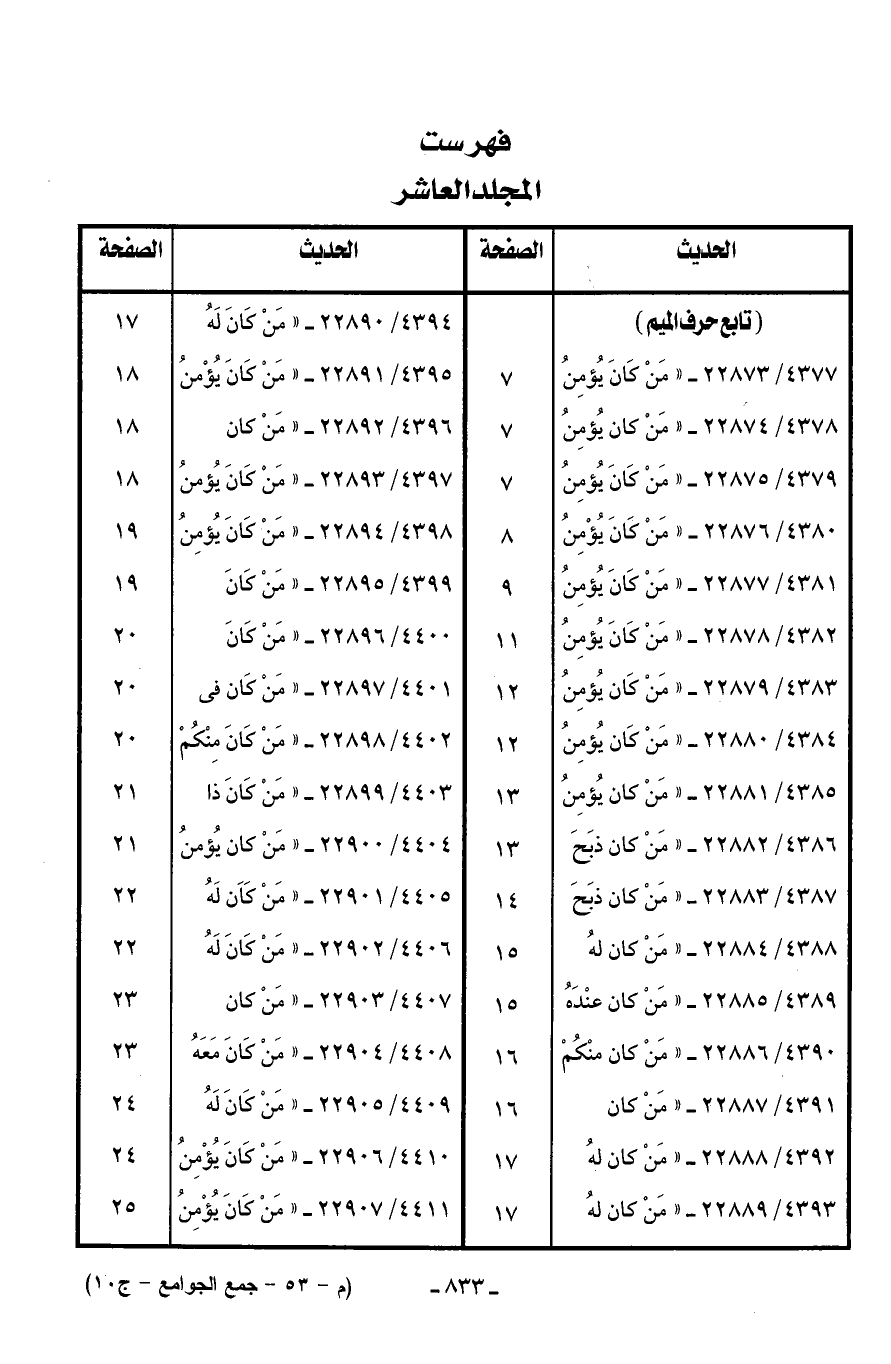 فهرست
المجلد العاشر
الحديث الصفحة الحديث الصفحة
(تابع حرف الميم) ٤٣٩٤/ ٢٢٨٩٠ ـ « مَنْ كَانَ لَهُ ١٧
٤٣٧٧/ ٢٢٨٧٣ ـ « مَنْ كَانَ يُؤمِنُ ٧ ٤٣٩٥/ ٢٢٨٩١ ـ « مَنْ كَانَ يُؤْمنُ ١٨
٤٣٧٨/ ٢٢٨٧٤ ـ « مَنْ كان يُؤمِنُ ٧ ٤٣٩٦/ ٢٢٨٩٢ ـ « مَنْ كان ١٨
٤٣٧٩/ ٢٢٨٧٥ ـ « مَنْ كَانَ يُؤمِنُ ٧ ٤٣٩٧/ ٢٢٨٩٣ ـ « مَنْ كَانَ يُؤمنُ ١٨
٤٣٨٠/ ٢٢٨٧٦ ـ « مَنْ كَانَ يُؤْمِنُ ٨ ٤٣٩٨/ ٢٢٨٩٤ ـ « مَنْ كَانَ يُؤمِنُ ١٩
٤٣٨١/ ٢٢٨٧٧ ـ « مَنْ كَانَ يُؤمِنُ ٩ ٤٣٩٩/ ٢٢٨٩٥ ـ « مَنْ كَانَ ١٩
٤٣٨٢/ ٢٢٨٧٨ ـ « مَنْ كَانَ يُؤمِنُ ١١ ٤٤٠٠/ ٢٢٨٩٦ ـ « مَنْ كَانَ ٢٠
٤٣٨٣/ ٢٢٨٧٩ ـ « مَنْ كَان يُؤمِنُ ١٢ ٤٤٠١/ ٢٢٨٩٧ ـ « مَنْ كَان فى ٢٠
٤٣٨٤/ ٢٢٨٨٠ ـ « مَنْ كَان يُؤمِنُ ١٢ ٤٤٠٢/ ٢٢٨٩٨ ـ « مَنْ كَانَ مِنْكُمْ ٢٠
٤٣٨٥/ ٢٢٨٨١ ـ « مَنْ كان يُؤمِنُ ١٣ ٤٤٠٣/ ٢٢٨٩٩ ـ « مَنْ كَانَ ذا ٢١
٤٣٨٦/ ٢٢٨٨٢ ـ « مَنْ كان ذبَحَ ١٣ ٤٤٠٤/ ٢٢٩٠٠ ـ « مَنْ كان يُؤمنُ ٢١
٤٣٨٧/ ٢٢٨٨٣ ـ « مَنْ كان ذبَحَ ١٤ ٤٤٠٥/ ٢٢٩٠١ ـ « مَنْ كَانَ لَهُ ٢٢
٤٣٨٨/ ٢٢٨٨٤ ـ « مَنْ كان لهُ ١٥ ٤٤٠٦/ ٢٢٩٠٢ ـ « مَنْ كَانَ لَهُ ٢٢
٤٣٨٩/ ٢٢٨٨٥ ـ « مَنْ كان عنْدَهُ ١٥ ٤٤٠٧/ ٢٢٩٠٣ ـ « مَنْ كان ٢٣
٤٣٩٠/ ٢٢٨٨٦ ـ « مَنْ كان منْكُمْ ١٦ ٤٤٠٨/ ٢٢٩٠٤ ـ « مَنْ كَانَ مَعَهُ ٢٣
٤٣٩١/ ٢٢٨٨٧ ـ « مَنْ كان ١٦ ٤٤٠٩/ ٢٢٩٠٥ ـ « مَنْ كَانَ لَهُ ٢٤
٤٣٩٢/ ٢٢٨٨٨ ـ « مَنْ كان لهُ ١٧ ٤٤١٠/ ٢٢٩٠٦ ـ « مَنْ كَانَ يُؤْمنُ ٢٤
٤٣٩٣/ ٢٢٨٨٩ ـ « مَنْ كان لهُ ١٧ ٤٤١١/ ٢٢٩٠٧ ـ « مَنْ كَانَ يُؤْمِنُ ٢٥
ـ ٨٣٣ ـ (م - ٥٣ - جمع الجوامع - ج١٠)